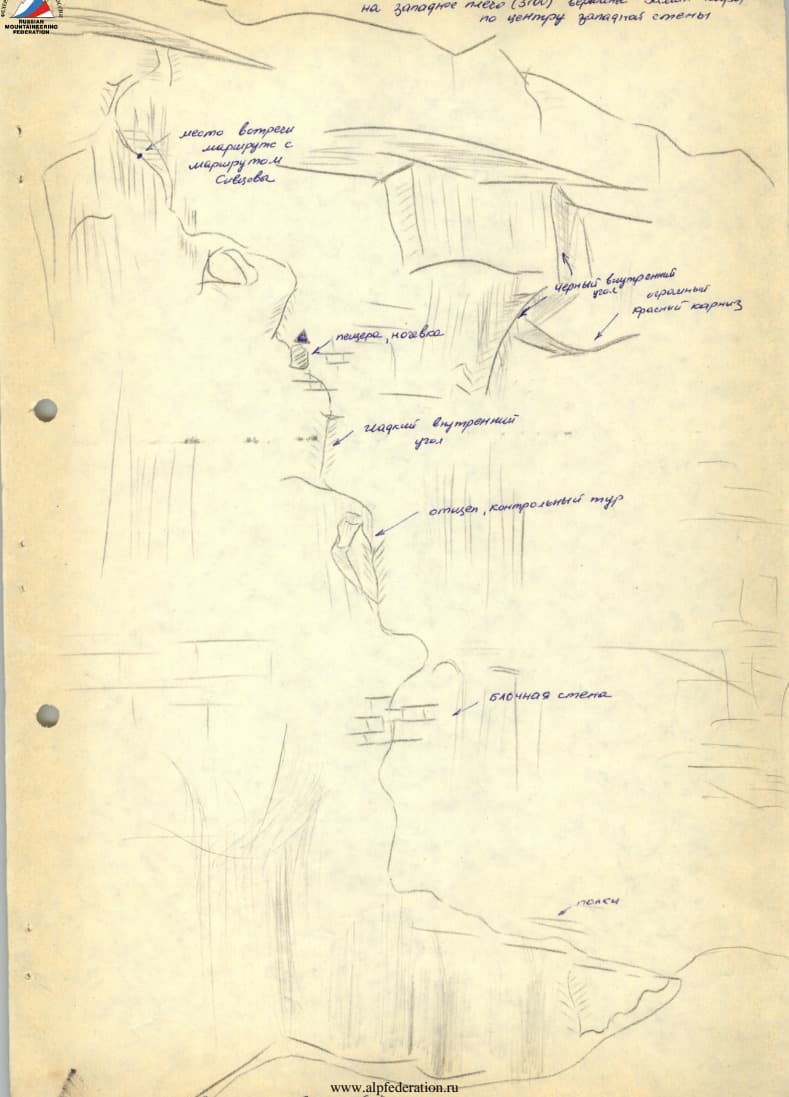 RUSSIAN
MOUNTAINEERING
FEDERATION
на западное плечо (3700) вершины
по центру западной стены
место встречи
маршрута с
маршрутом
Сивцова
черный внутренний
угол
огромный
красный карниз
пещера, ночевка
гладкий внутренний
угол
отщеп, контрольный тур
блочная стена
полки
www.alpfederation.ru